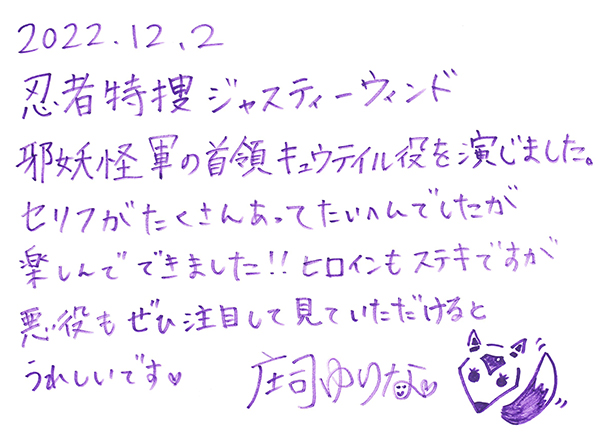 2022.12.2
忍者特捜ジャスティーウィンド
邪妖怪軍の首領キュウテイル役を演じました。
セリフがたくさんあってたいへんでしたが
楽しんでできました!! ヒロインもステキですが
悪役もぜひ注目して見ていただけると
うれしいです♥ 庄司ゆりな♥